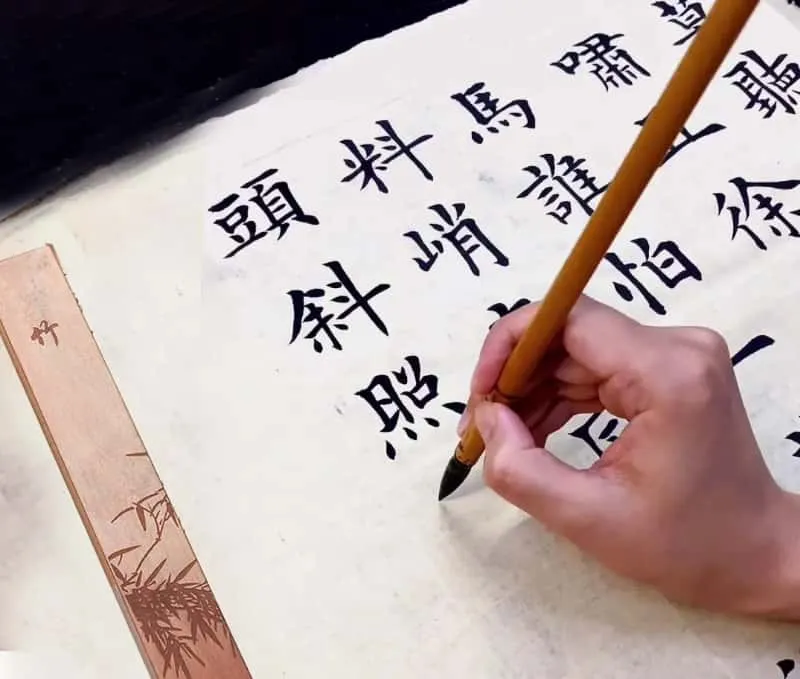 聽
嘯徐
馬誰怕
料峭
頭斜照
竹